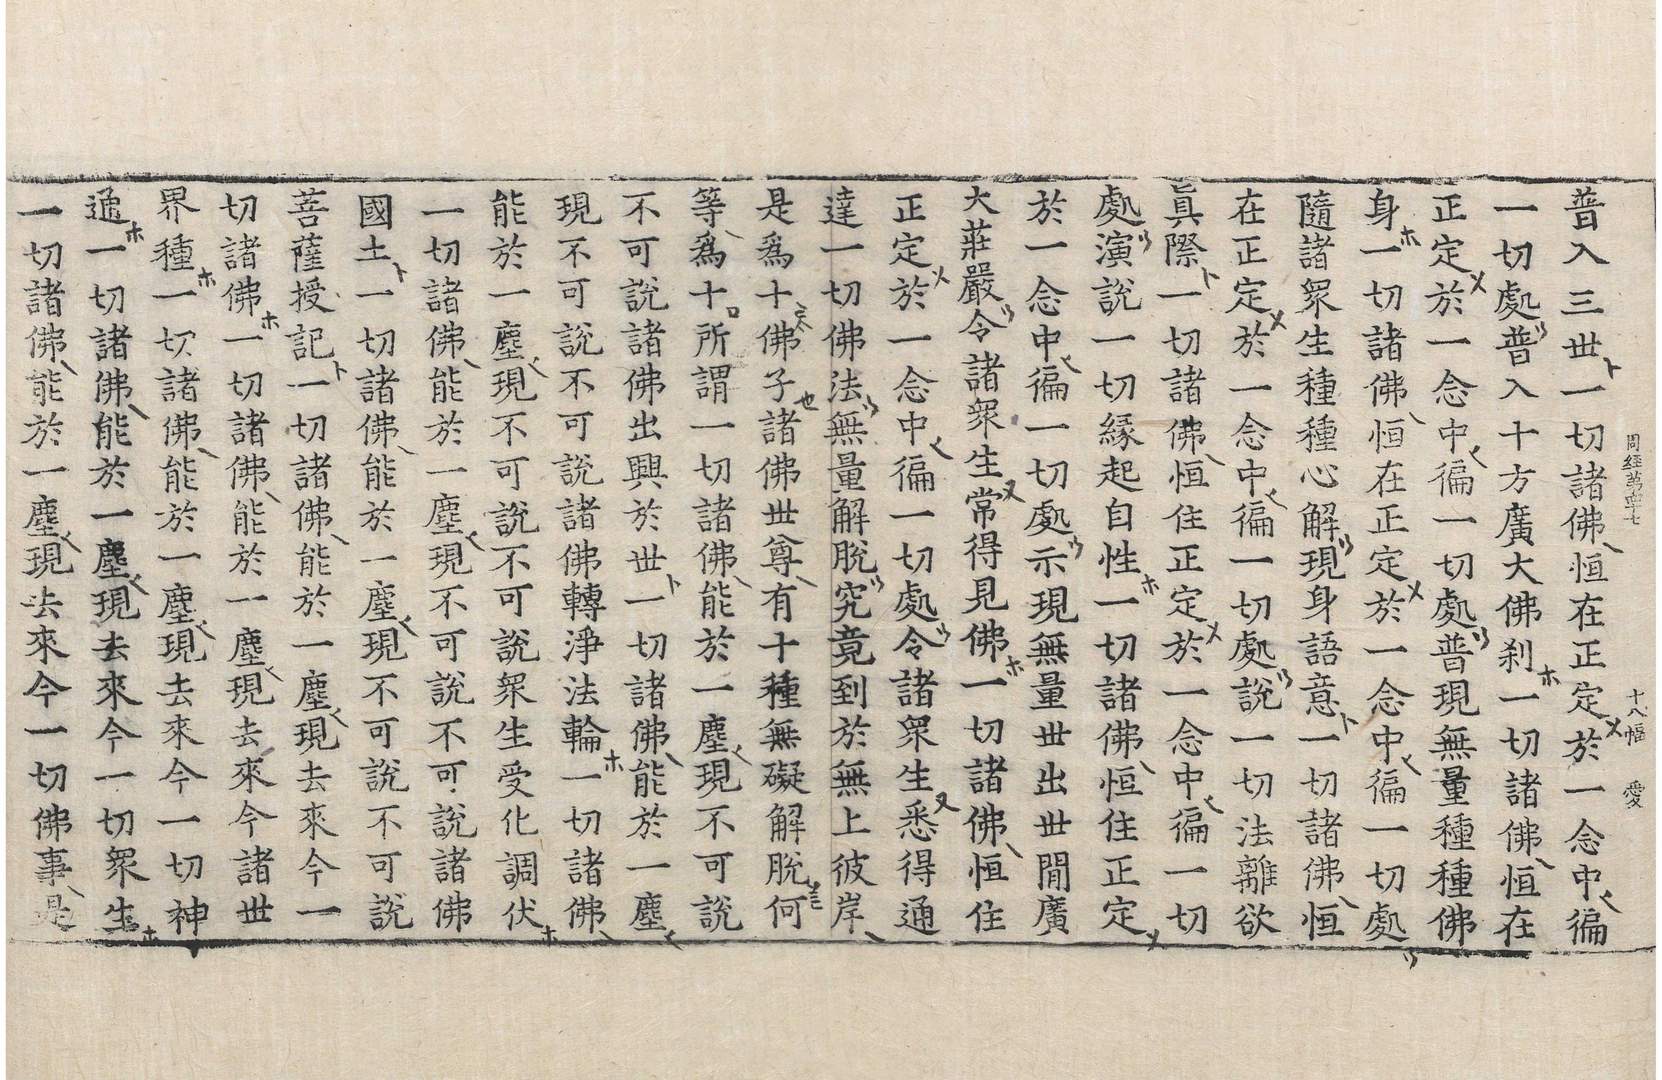 周経苐卌七 十八幅 愛
普入三世一切諸佛恒在正定於一念中徧
一切處普入十方廣大佛刹一切諸佛恒在
正定於一念中徧一切處普現無量種種佛
身一切諸佛恒在正定於一念中徧一切處
隨諸眾生種種心解現身語意一切諸佛恒
在正定於一念中徧一切處說一切法離欲
眞際一切諸佛恒住正定於一念中徧一切
處演說一切緣起自性一切諸佛恒住正定
於一念中徧一切處示現無量世出世間廣
大莊嚴令諸眾生常得見佛一切諸佛恒住
正定於一念中徧一切處令諸眾生悉得通
達一切佛法無量解脫究竟到於無上彼岸
是爲十佛子諸佛世尊有十種無礙解脫何
等爲十所謂一切諸佛能於一塵現不可說
不可說諸佛出興於世一切諸佛能於一塵
現不可說不可說諸佛轉淨法輪一切諸佛
能於一塵現不可說不可說眾生受化調伏
一切諸佛能於一塵現不可說不可說諸佛
國土一切諸佛能於一塵現不可說不可說
菩薩授記一切諸佛能於一塵現去來今一
切諸佛一切諸佛能於一塵現去來今諸世
界種一切諸佛能於一塵現去來今一切神
通一切諸佛能於一塵現去來今一切眾生
一切諸佛能於一塵現去來今一切佛事是